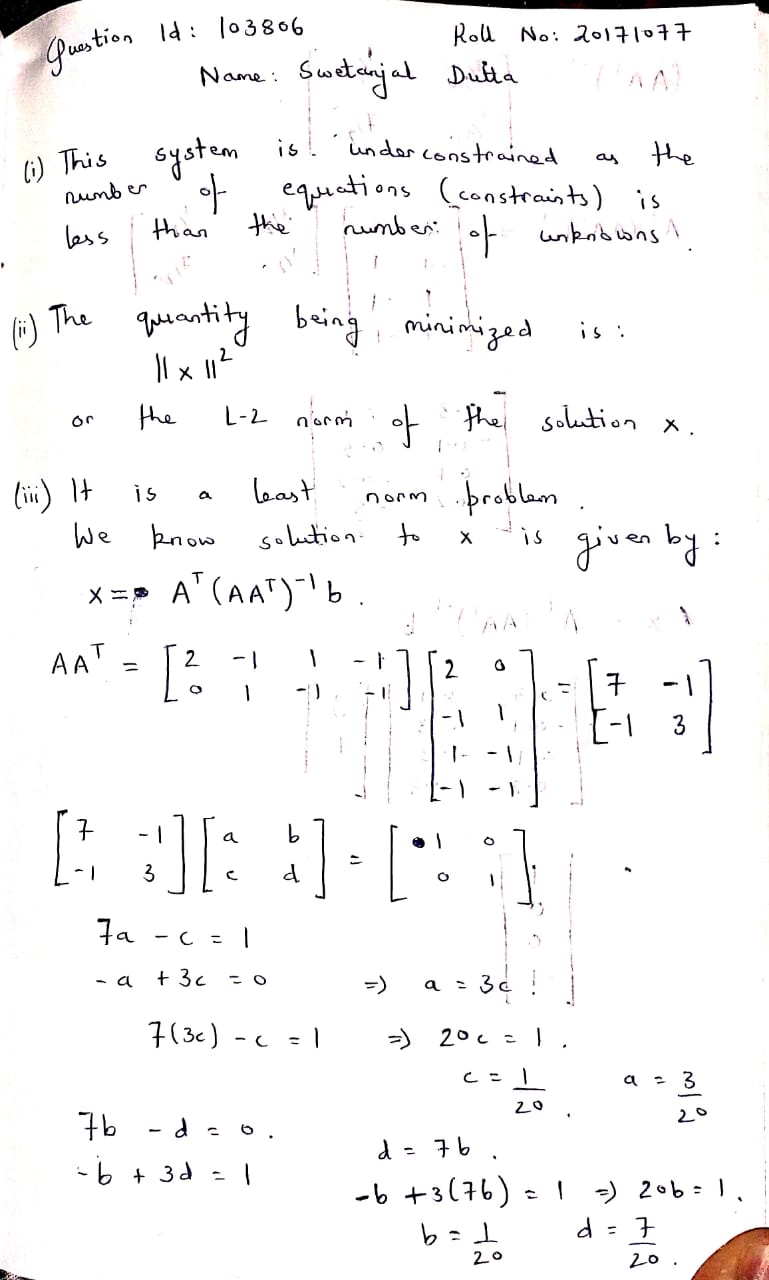 Question Id: 103806 Roll No: 20171077
Name: Swetanjal Dutta
(i) This system is underconstrained as the
number of equations (constraints) is
less than the number of unknowns.
(ii) The quantity being minimized is:
||x||²
or the L-2 norm of the solution x.
(iii) It is a least norm problem.
We know solution to x is given by:
x = Aᵀ(AAᵀ)⁻¹b.
AAᵀ = [2 -1 1 -1] [2 0] = [7 -1]
[0 1 -1 -1] [-1 1] [-1 3]
[1 -1]
[-1 -1]
[7 -1] [a b] = [1 0]
[-1 3] [c d] [0 1]
7a - c = 1
-a + 3c = 0 => a = 3c
7(3c) - c = 1 => 20c = 1.
c = 1/20. a = 3/20
7b - d = 0. d = 7b.
-b + 3d = 1
-b + 3(7b) = 1 => 20b = 1.
b = 1/20 d = 7/20.